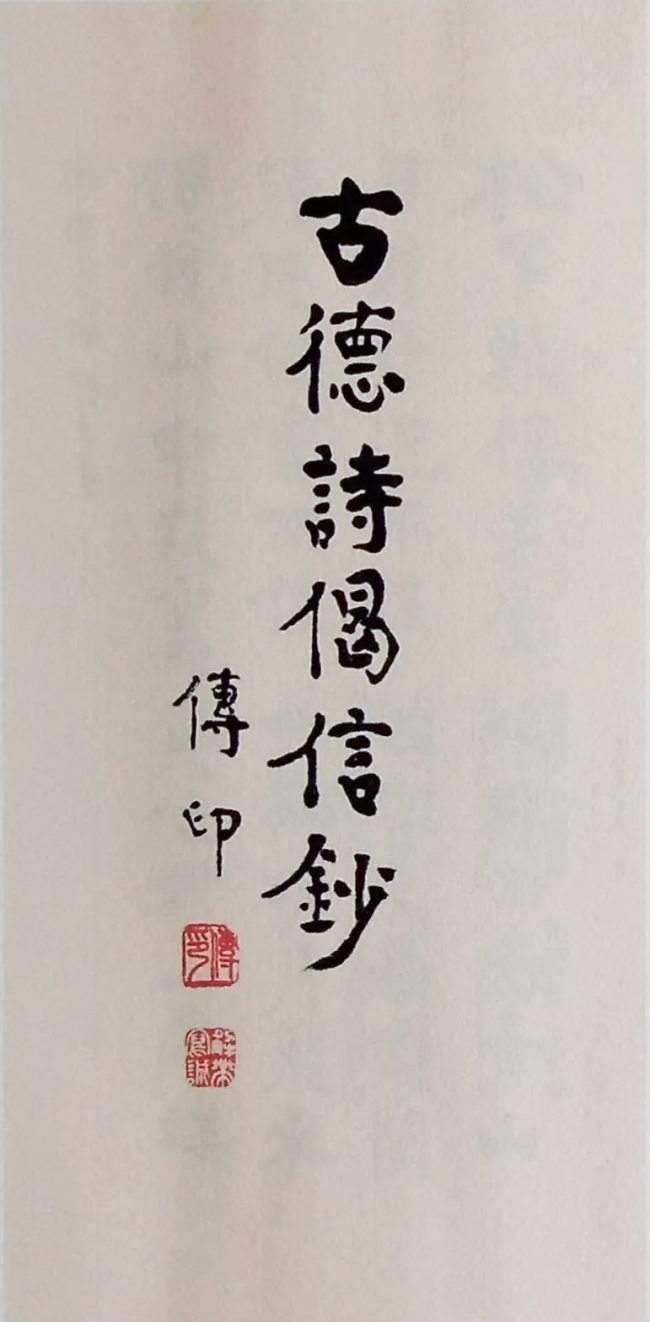 古德詩偈信鈔
傳印
傳印